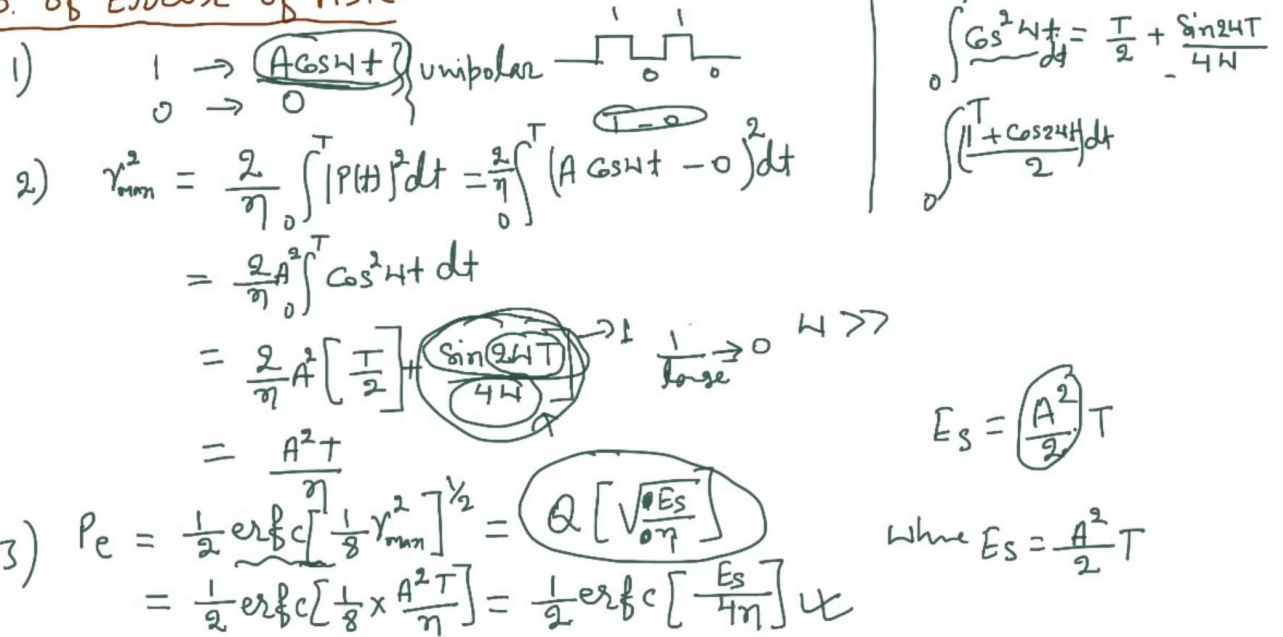 of Error of ASK
1) 1 → A Cos ωt } unipolar 1 1 0 0
0 → 0
1 – 0
2) γ²max = 2/η ₀∫ᵀ |P(t)|² dt = 2/η ₀∫ᵀ (A Cos ωt – 0)² dt
= 2A²/η ₀∫ᵀ Cos² ωt dt
= 2/η A² [T/2] + Sin 2ωT / 4ω] → 1 1/large → 0 ω >>
= A²T/η
3) Pe = 1/2 erfc [1/8 γ²max]^1/2 = Q [√Es/η]
= 1/2 erfc [1/8 × A²T/η] = 1/2 erfc [Es/4η]
₀∫ Cos² ωt dt = T/2 + Sin 2ωT / 4ω
₀∫ᵀ (1 + Cos 2ωt / 2) dt
Es = A²/2 T
where Es = A²/2 T